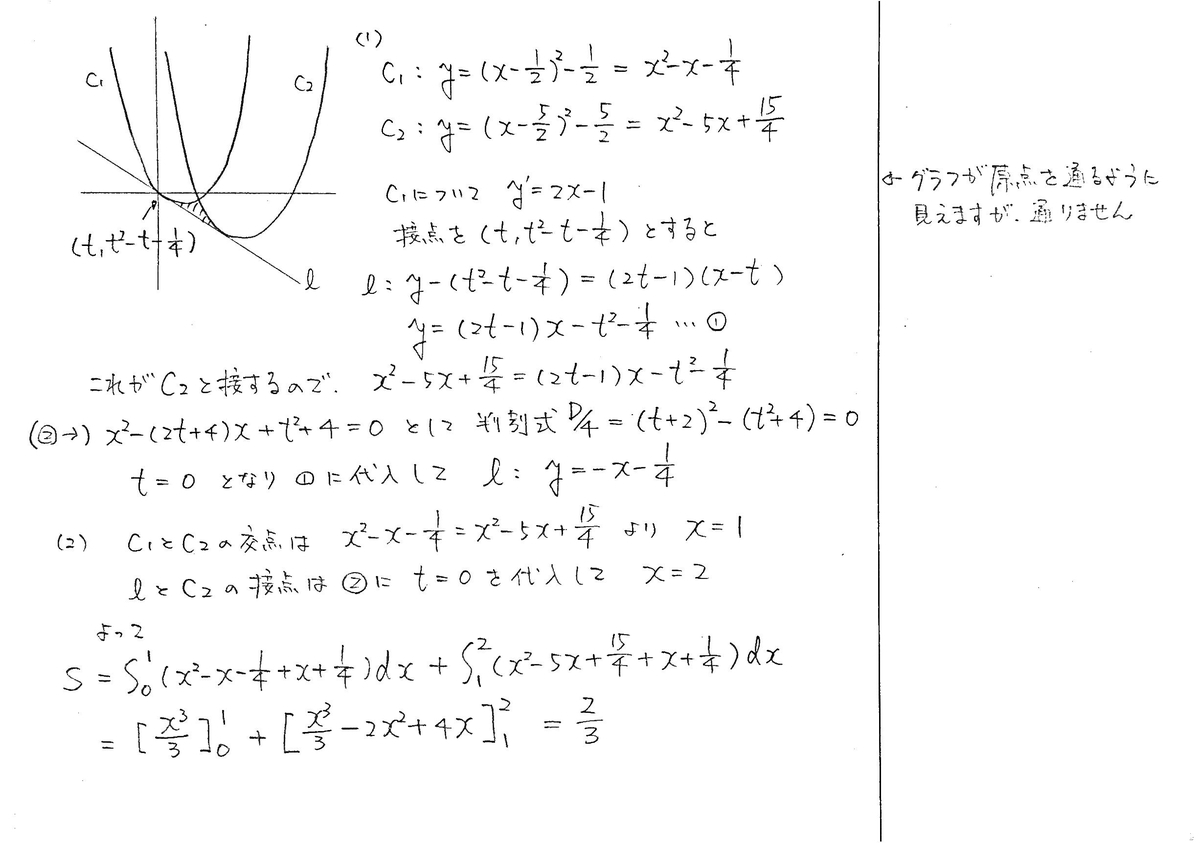 C₁
C₂
(t, t²-t-1/4)
l
(1)
C₁: y=(x-1/2)²-1/2 = x²-x-1/4
C₂: y=(x-5/2)²-5/2 = x²-5x+15/4
C₁について y'=2x-1
接点を(t, t²-t-1/4)とすると
l: y-(t²-t-1/4)=(2t-1)(x-t)
y=(2t-1)x-t²-1/4 …①
これがC₂と接するので、 x²-5x+15/4=(2t-1)x-t²-1/4
(②→) x²-(2t+4)x+t²+4=0 として 判別式 D/4=(t+2)²-(t²+4)=0
t=0 となり ①に代入して l: y=-x-1/4
(2) C₁とC₂の交点は x²-x-1/4=x²-5x+15/4 より x=1
lとC₂の接点は②に t=0 を代入して x=2
よって
S = ∫₀¹(x²-x-1/4+x+1/4)dx + ∫₁²(x²-5x+15/4+x+1/4)dx
= [x³/3]₀¹ + [x³/3-2x²+4x]₁² = 2/3
← グラフが原点を通るように
見えますが、通りません